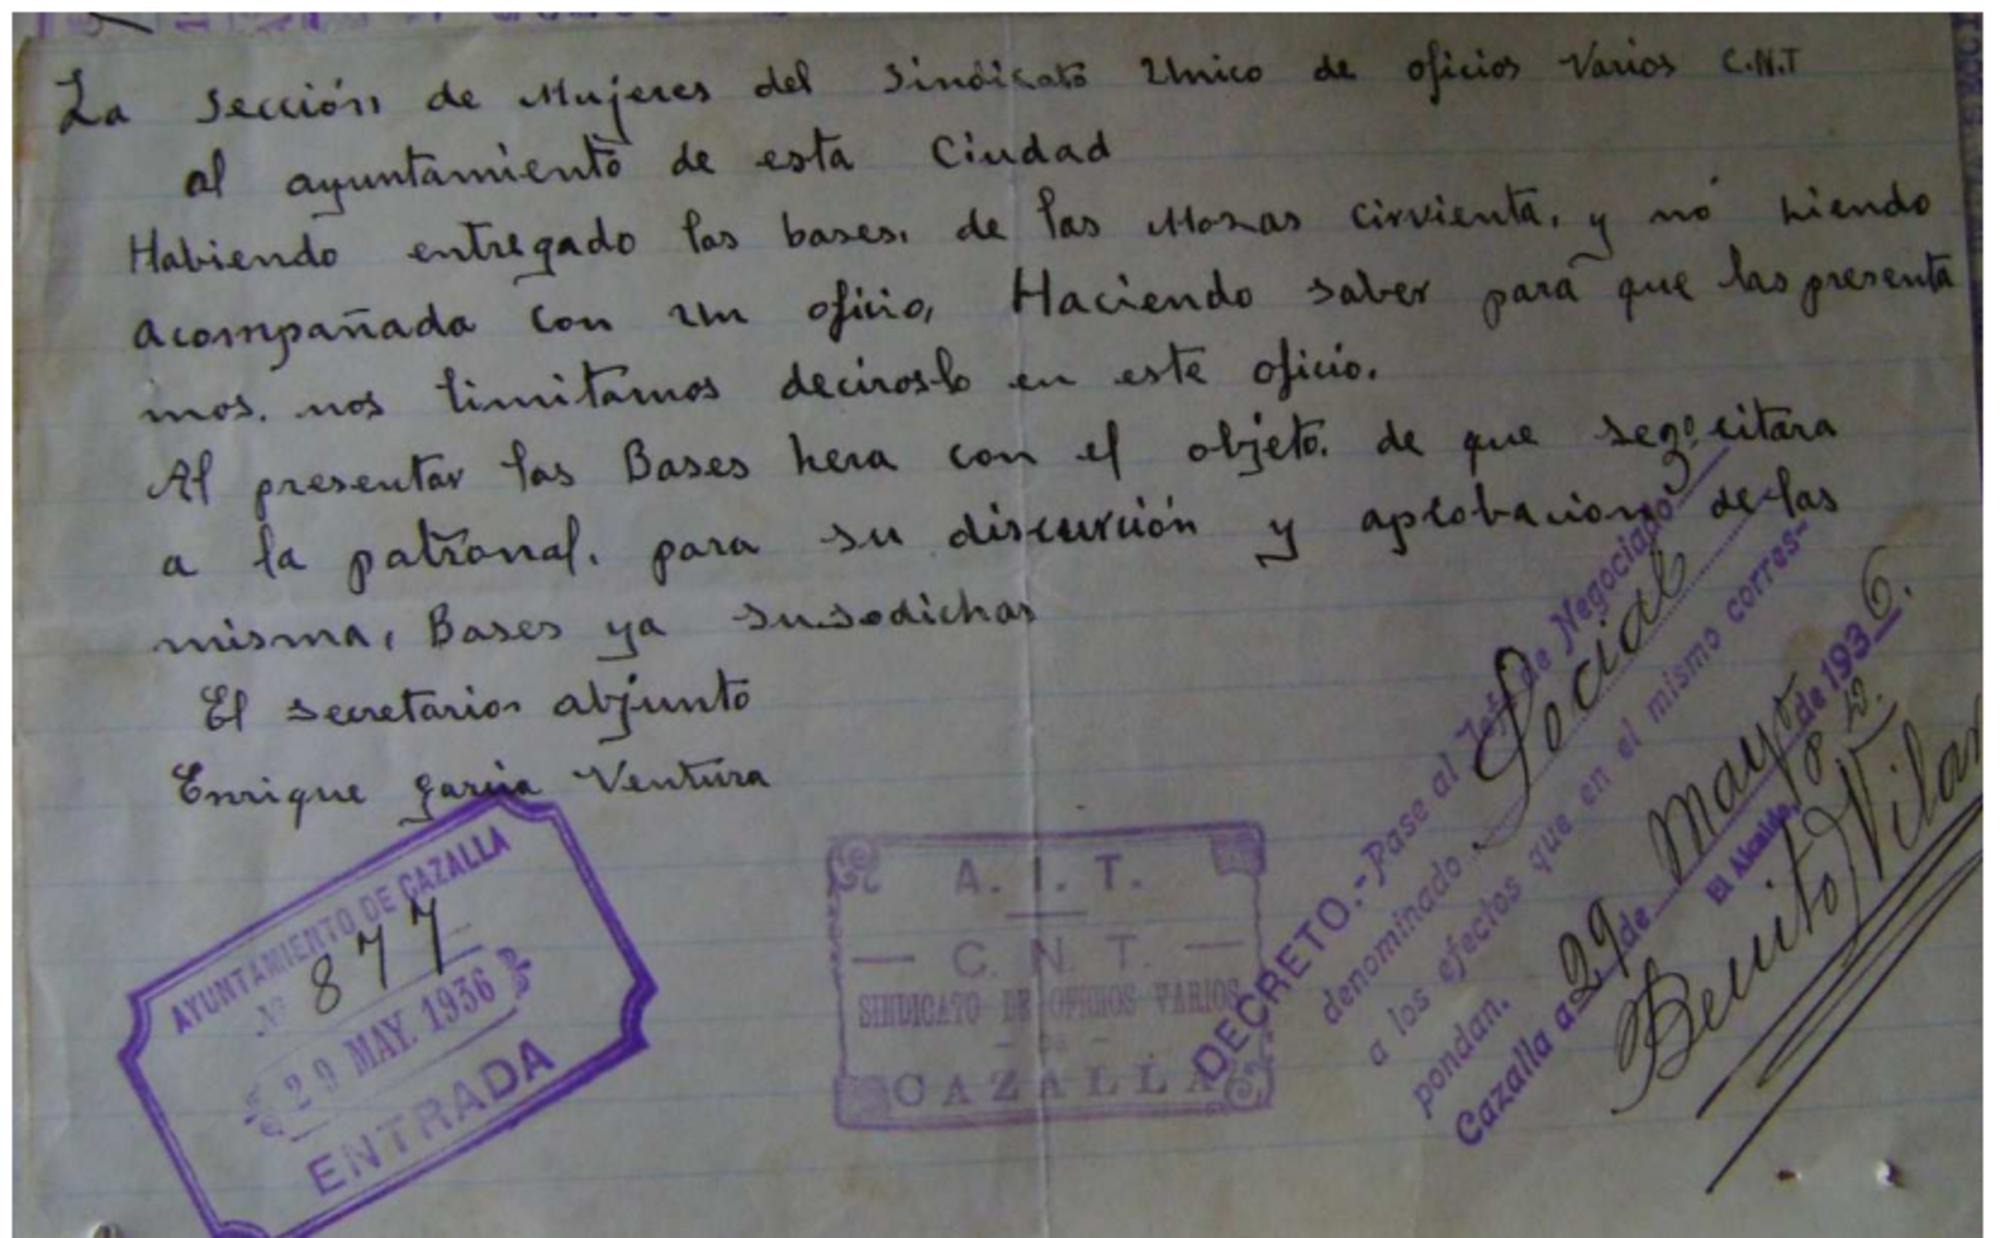 La Sección de Mujeres del Sindicato Unico de oficios Varios C.N.T
al ayuntamiento de esta Ciudad
Habiendo entregado las bases, de las Mozas cirvienta, y nó hiendo
acompañada con un oficio, Haciendo saber para que las presenta
mos. nos limitamos deciroslo en este oficio.
Al presentar las Bases hera con el objeto. de que se citara
a la patronal. para su discurción y aprobacion de las
misma, Bases ya susodichas
El secretario abjunto
Enrique garcia Ventura
AYUNTAMIENTO DE CAZALLA
Nº 877
29 MAY. 1936
ENTRADA
A. I. T.
C. N. T.
SINDICATO DE OFICIOS VARIOS
DE
CAZALLA
DECRETO.-Pase al Jefe de Negociado
denominado Social
a los efectos que en el mismo corres-
pondan.
Cazalla a 29 de mayo de 1936.
El Alcalde,
Benito Vilar